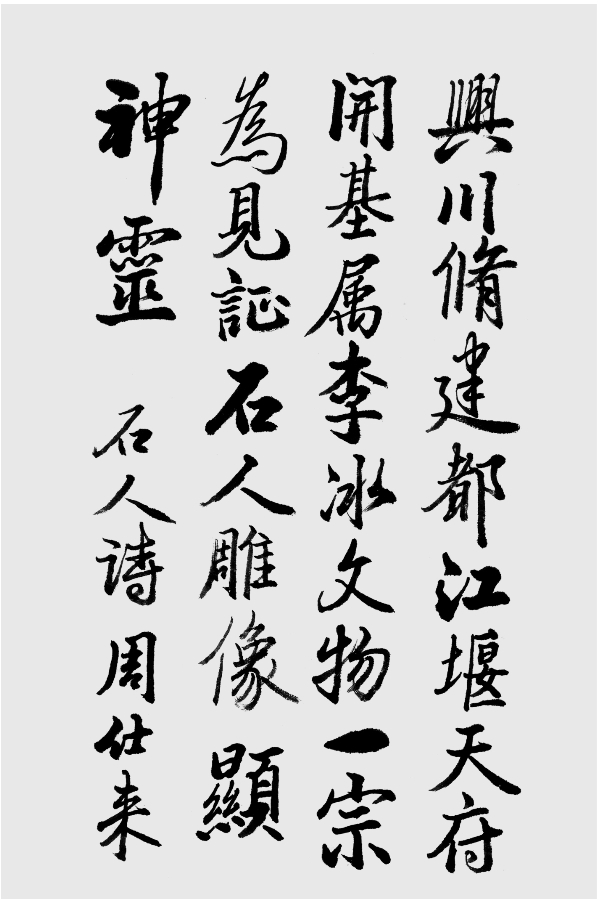 興川脩建都江堰天府
開基属李冰文物一宗
為見証石人雕像顯
神靈 石人诗周仕来